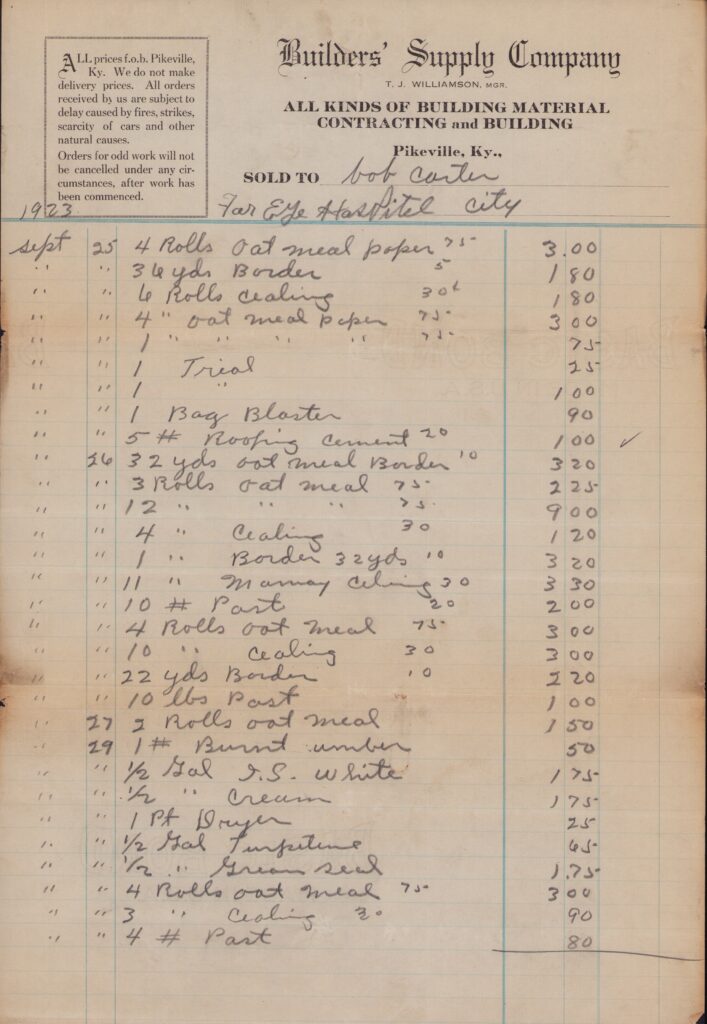 ALL prices f.o.b. Pikeville,
Ky. We do not make
delivery prices. All orders
received by us are subject to
delay caused by fires, strikes,
scarcity of cars and other
natural causes.
Orders for odd work will not
be cancelled under any cir-
cumstances, after work has
been commenced.
Builders' Supply Company
T. J. WILLIAMSON, MGR.
ALL KINDS OF BUILDING MATERIAL
CONTRACTING and BUILDING
Pikeville, Ky.,
SOLD TO bob carter
1923 For EYe Hospitel city
sept 25 4 Rolls oat meal paper 75 3.00
" " 36 yds Border 5 1 80
" " 6 Rolls cealing 30¢ 1 80
" " 4 " oat meal paper 75 3 00
" " 1 " " " " 75 75
" " 1 Trial 25
" " 1 " 1 00
" " 1 Bag Blaster 90
" " 5 # Roofing cement 20 1 00 ✓
" 26 32 yds oat meal Border 10 3 20
" " 3 Rolls oat meal 75 2 25
" " 12 " " " 75 9 00
" " 4 " Cealing 30 1 20
" " 1 " Border 32 yds 10 3 20
" " 11 " Celing 30 3 30
" " 10 # Past 20 2 00
" " 4 Rolls oat meal 75 3 00
" " 10 " cealing 30 3 00
" " 22 yds Border 10 2 20
" " 10 lbs Past 1 00
" 27 2 Rolls oat meal 1 50
" 29 1 # Burnt umber 50
" " 1/2 Gal I.S. white 1 75
" " 1/2 " Cream 1 75
" " 1 Pt Dryer 25
" " 1/2 Gal Turpitine 65
" " 1/2 " Green seal 1.75
" " 4 Rolls oat meal 75 3 00
" " 3 " Cealing 30 90
" " 4 # Past 80